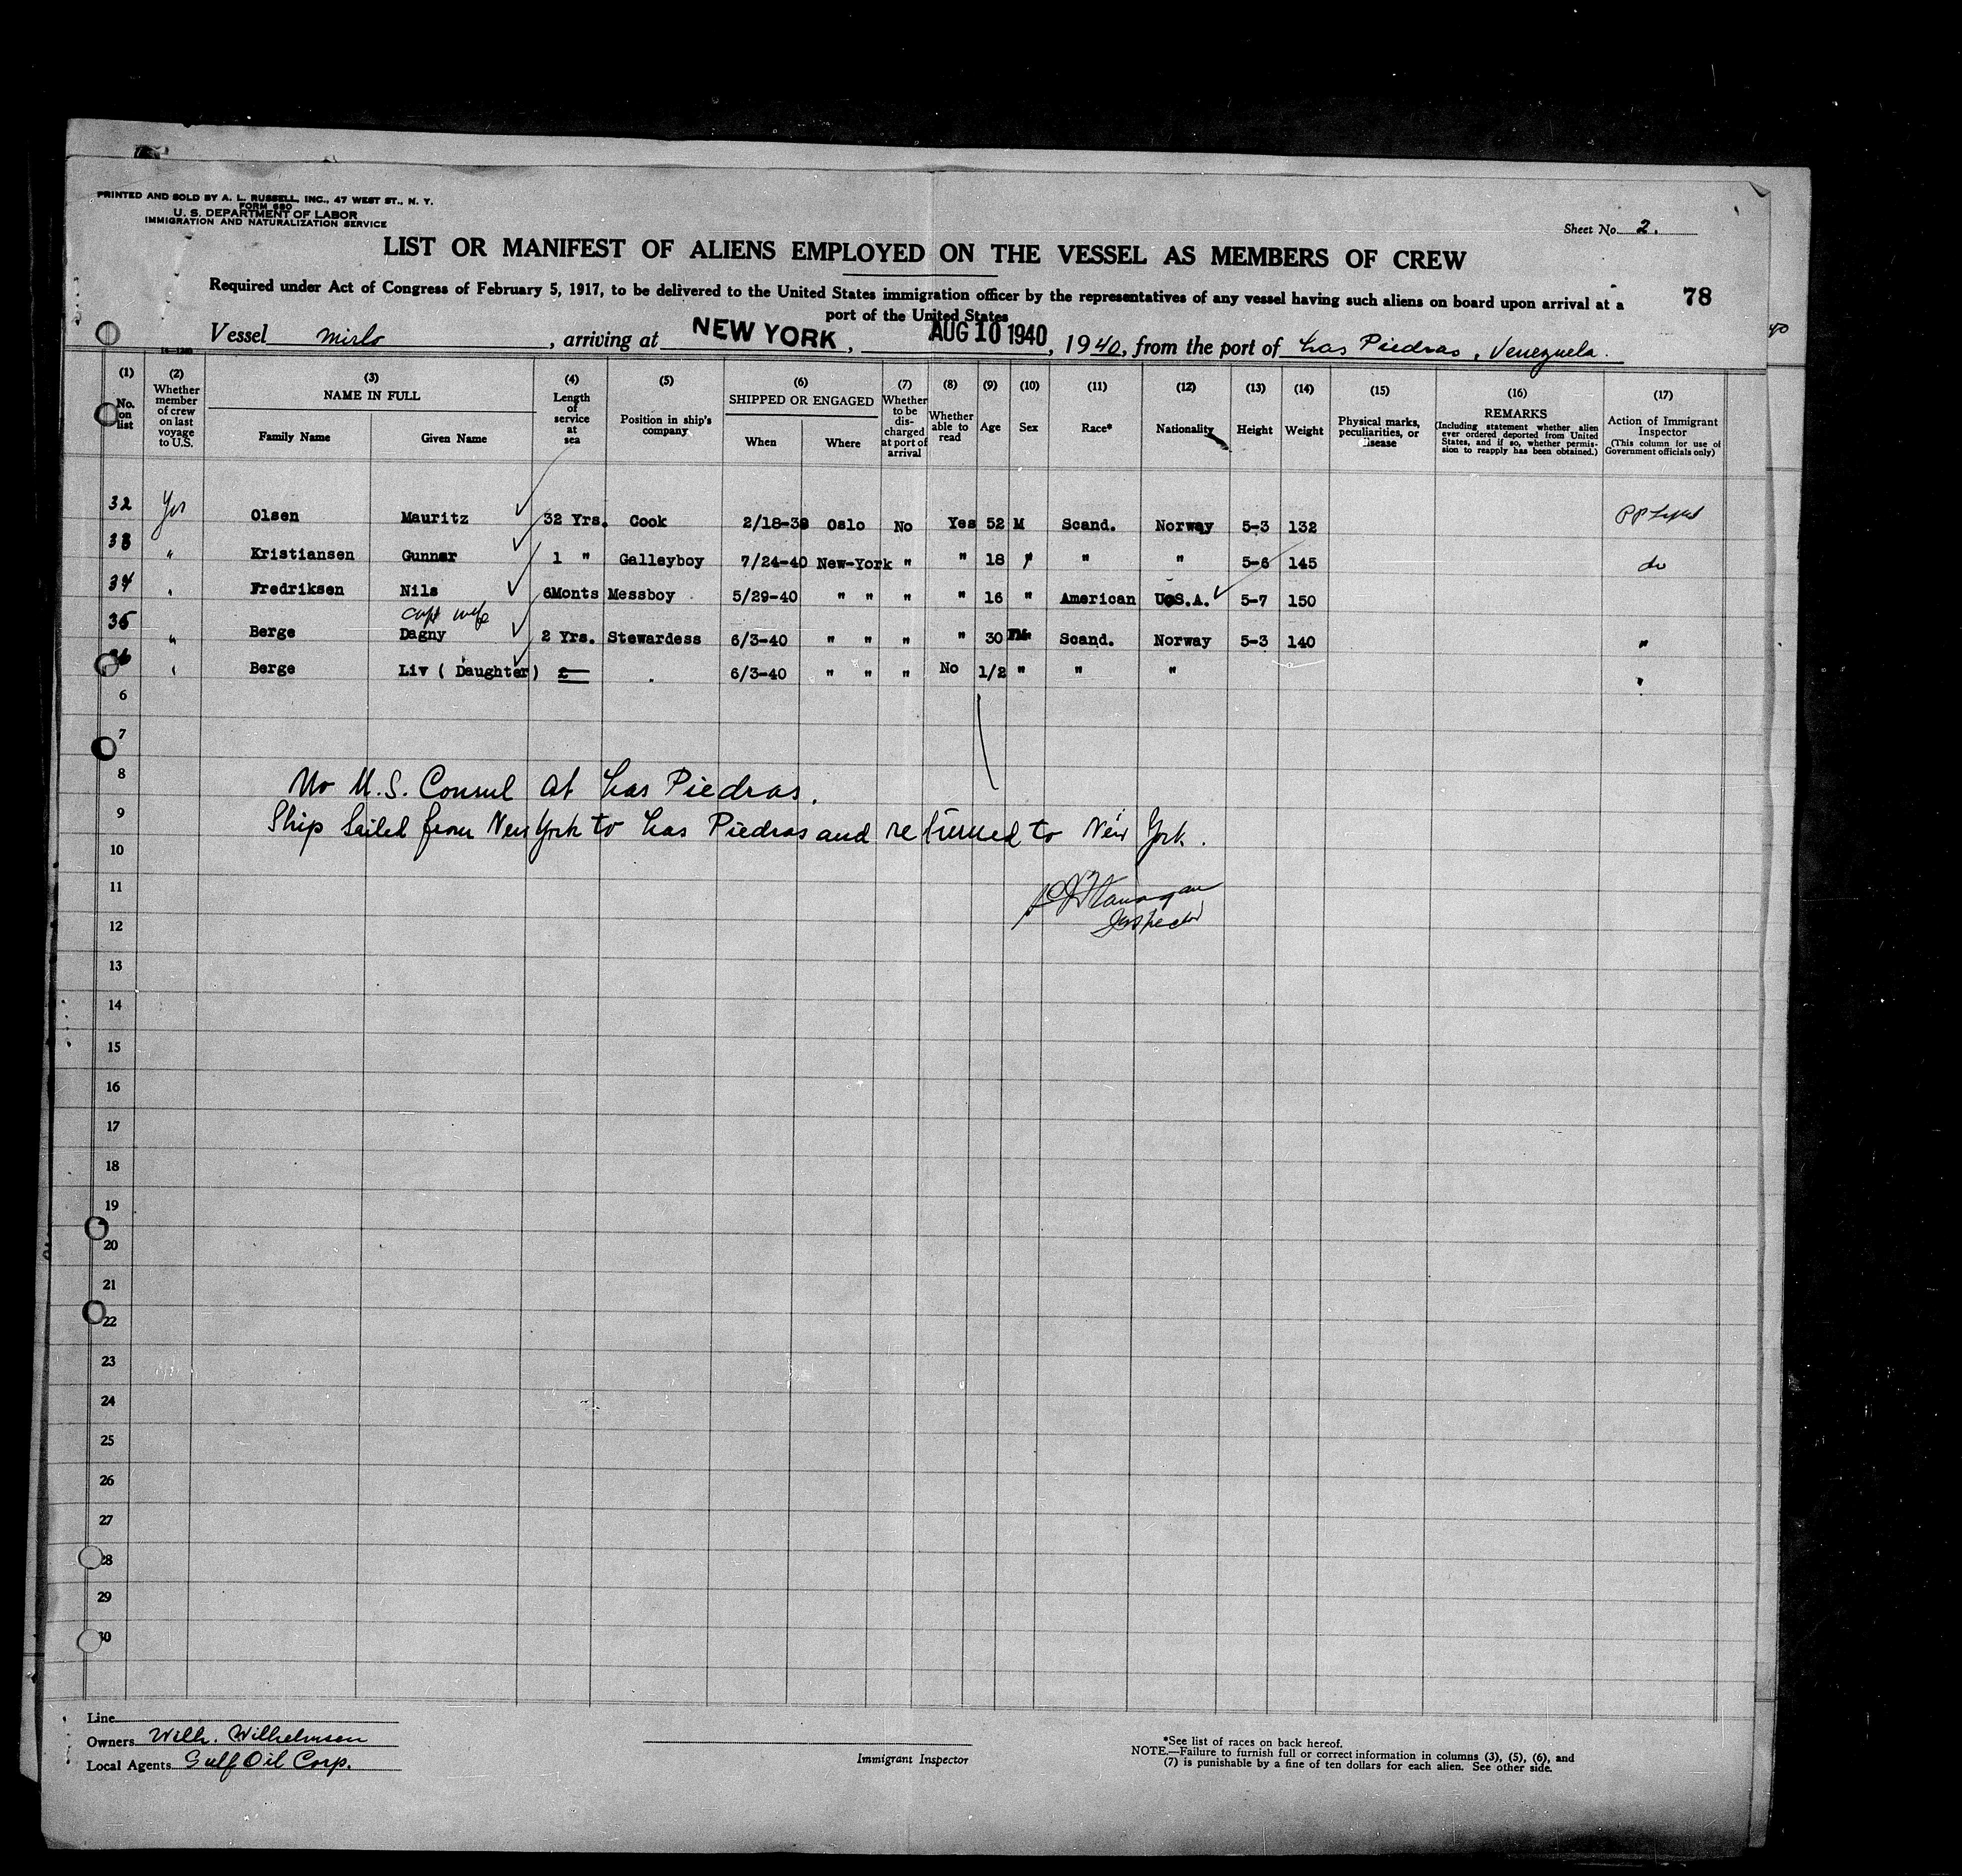 PRINTED AND SOLD BY A. L. RUSSELL, INC., 47 WEST ST., N. Y.
FORM 680
U. S. DEPARTMENT OF LABOR
IMMIGRATION AND NATURALIZATION SERVICE
Sheet No. 2.
LIST OR MANIFEST OF ALIENS EMPLOYED ON THE VESSEL AS MEMBERS OF CREW
Required under Act of Congress of February 5, 1917, to be delivered to the United States immigration officer by the representatives of any vessel having such aliens on board upon arrival at a
port of the United States
78
Vessel Mirlo, arriving at NEW YORK, AUG 10 1940, 1940, from the port of Las Piedras, Venezuela.
(1) No. on list
(2) Whether member of crew on last voyage to U.S.
(3) NAME IN FULL
Family Name
Given Name
(4) Length of service at sea
(5) Position in ship's company
(6) SHIPPED OR ENGAGED
When
Where
(7) Whether to be discharged at port of arrival
(8) Whether able to read
(9) Age
(10) Sex
(11) Race*
(12) Nationality
(13) Height
(14) Weight
(15) Physical marks, peculiarities, or disease
(16) REMARKS (Including statement whether alien ever ordered deported from United States, and if so, whether permission to reapply has been obtained.)
(17) Action of Immigrant Inspector (This column for use of Government officials only)
32 Yes Olsen Mauritz 32 Yrs. Cook 2/18-39 Oslo No Yes 52 M Scand. Norway 5-3 132
33 " Kristiansen Gunnar 1 " Galleyboy 7/24-40 New-York " " 18 " " " 5-6 145 do
34 " Fredriksen Nils 6Monts Messboy 5/29-40 " " " " 16 " American U.S.A. 5-7 150
Capt wife
35 " Berge Dagny 2 Yrs. Stewardess 6/3-40 " " " " 30 FM. Scand. Norway 5-3 140 "
36 " Berge Liv ( Daughter) 6/3-40 " " " No 1/2 " " " "
6
7
8
No U.S. Consul at Las Piedras.
9
Ship sailed from New York to Las Piedras and returned to New York.
10
11
Inspector
12
13
14
15
16
17
18
19
20
21
22
23
24
25
26
27
28
29
30
Line
Owners Wilh. Wilhelmsen
Local Agents Gulf Oil Corp.
Immigrant Inspector
*See list of races on back hereof.
NOTE.—Failure to furnish full or correct information in columns (3), (5), (6), and
(7) is punishable by a fine of ten dollars for each alien. See other side.